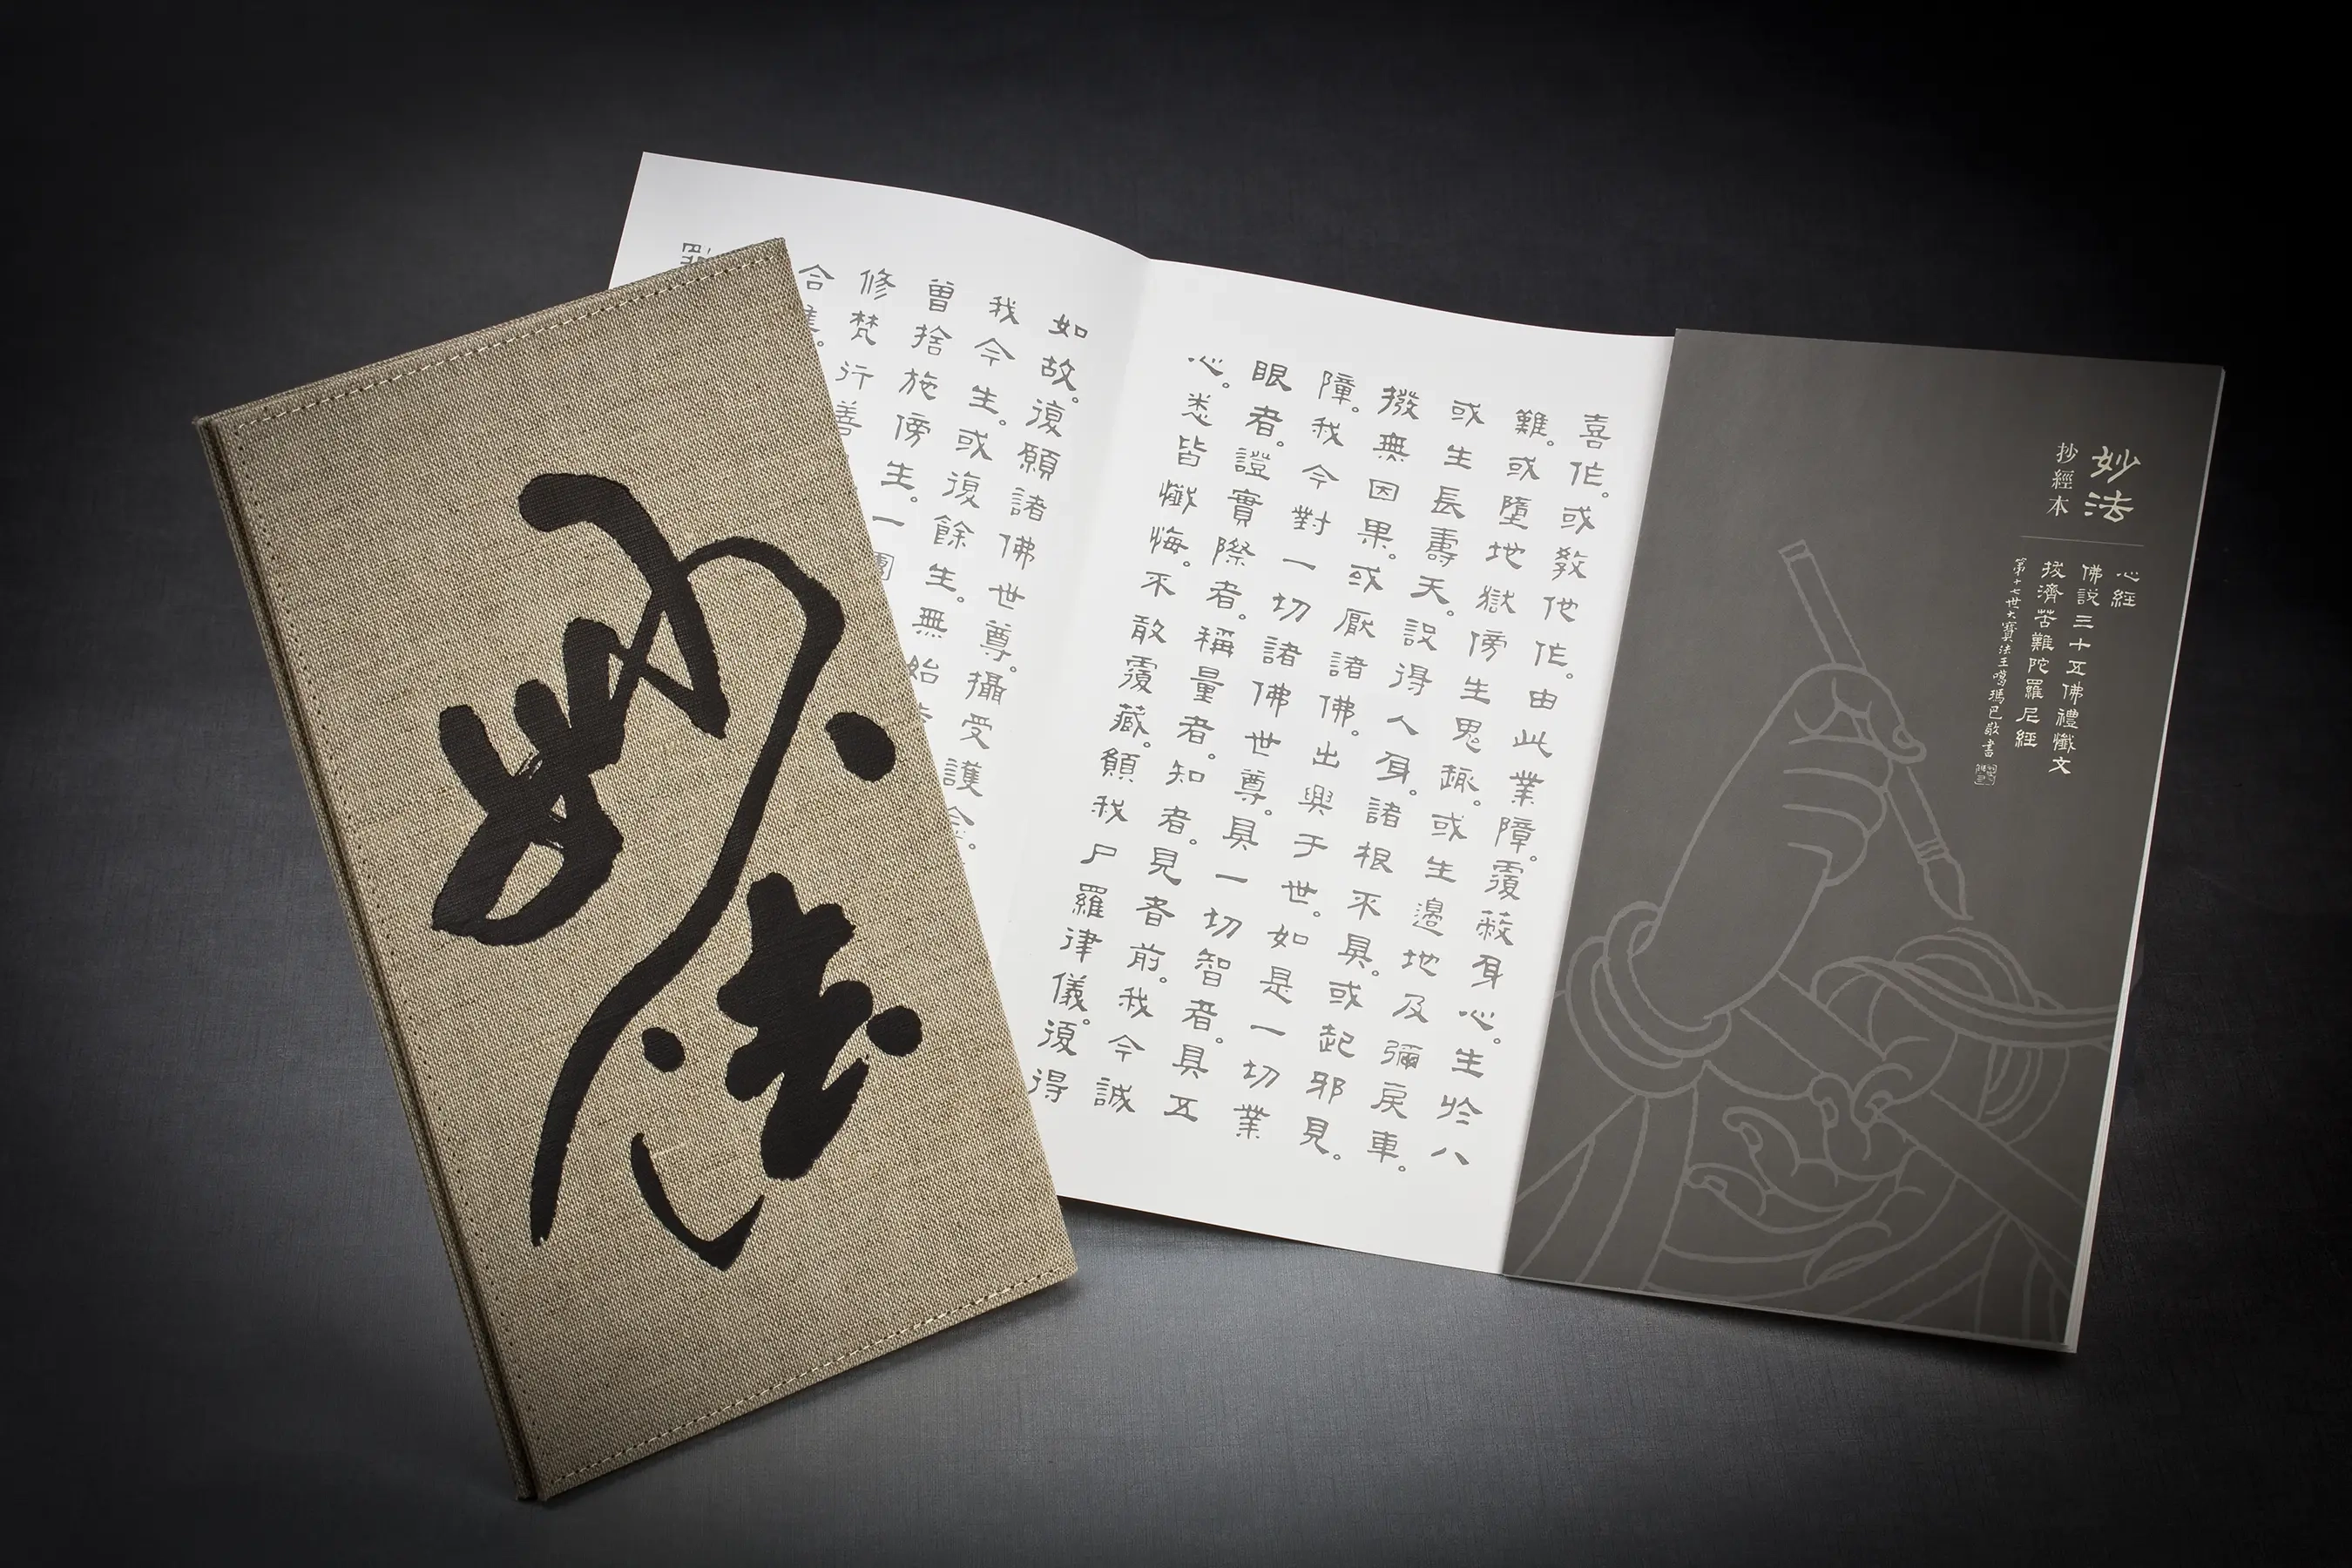 妙法
妙法
抄經本
心經
佛說三十五佛禮懺文
拔濟苦難陀羅尼經
第十七世大寶法王噶瑪巴敬書
喜作。或教他作。由此業障。覆蔽身心。生於八
難。或墮地獄傍生鬼趣。或生邊地及彌戾車。
或生長壽天。設得人身。諸根不具。或起邪見。
撥無因果。或厭諸佛。出興于世。如是一切業
障。我今對一切諸佛世尊。具一切智者。具五
眼者。證實際者。稱量者。知者。見者前。我今誠
心。悉皆懺悔。不敢覆藏。願我尸羅律儀。復得
如故。復願諸佛世尊。攝受護念。
我今生。或復餘生。無始
曾捨施傍生。一團
修梵行善
合